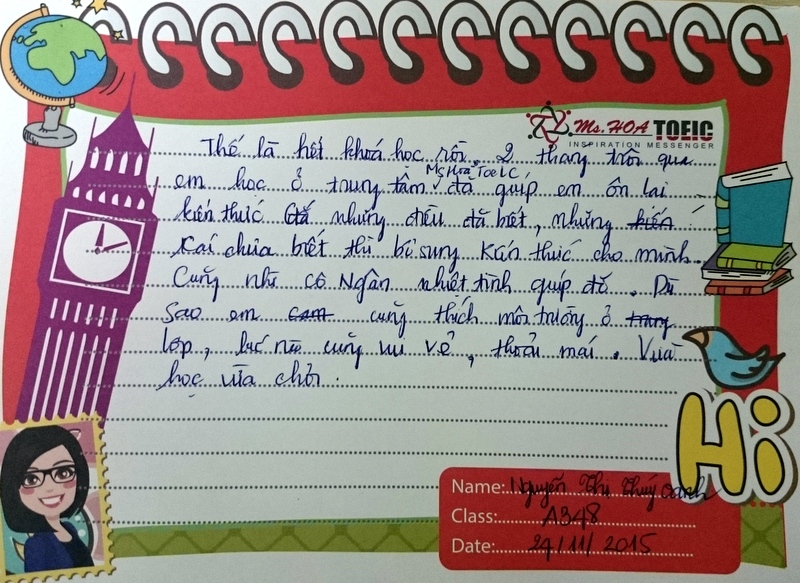 Ms. HOA TOEIC
INSPIRATION MESSENGER
Thế là hết khoá học rồi. 2 tháng trôi qua
em học ở trung tâm Ms Hoa TOEIC đã giúp em ôn lại
kiến thức đã những điều đã biết, những kiến
cái chưa biết thì bổ sung kiến thức cho mình.
Cũng nhờ cô Ngân nhiệt tình giúp đỡ. Dù
sao em cam cũng thích môi trường ở trung
lớp, lúc nào cũng vui vẻ, thoải mái. Vừa
học vừa chơi.
Hi
Name: Nguyễn Thị Thuý Oanh
Class: A348
Date: 24/11/2015